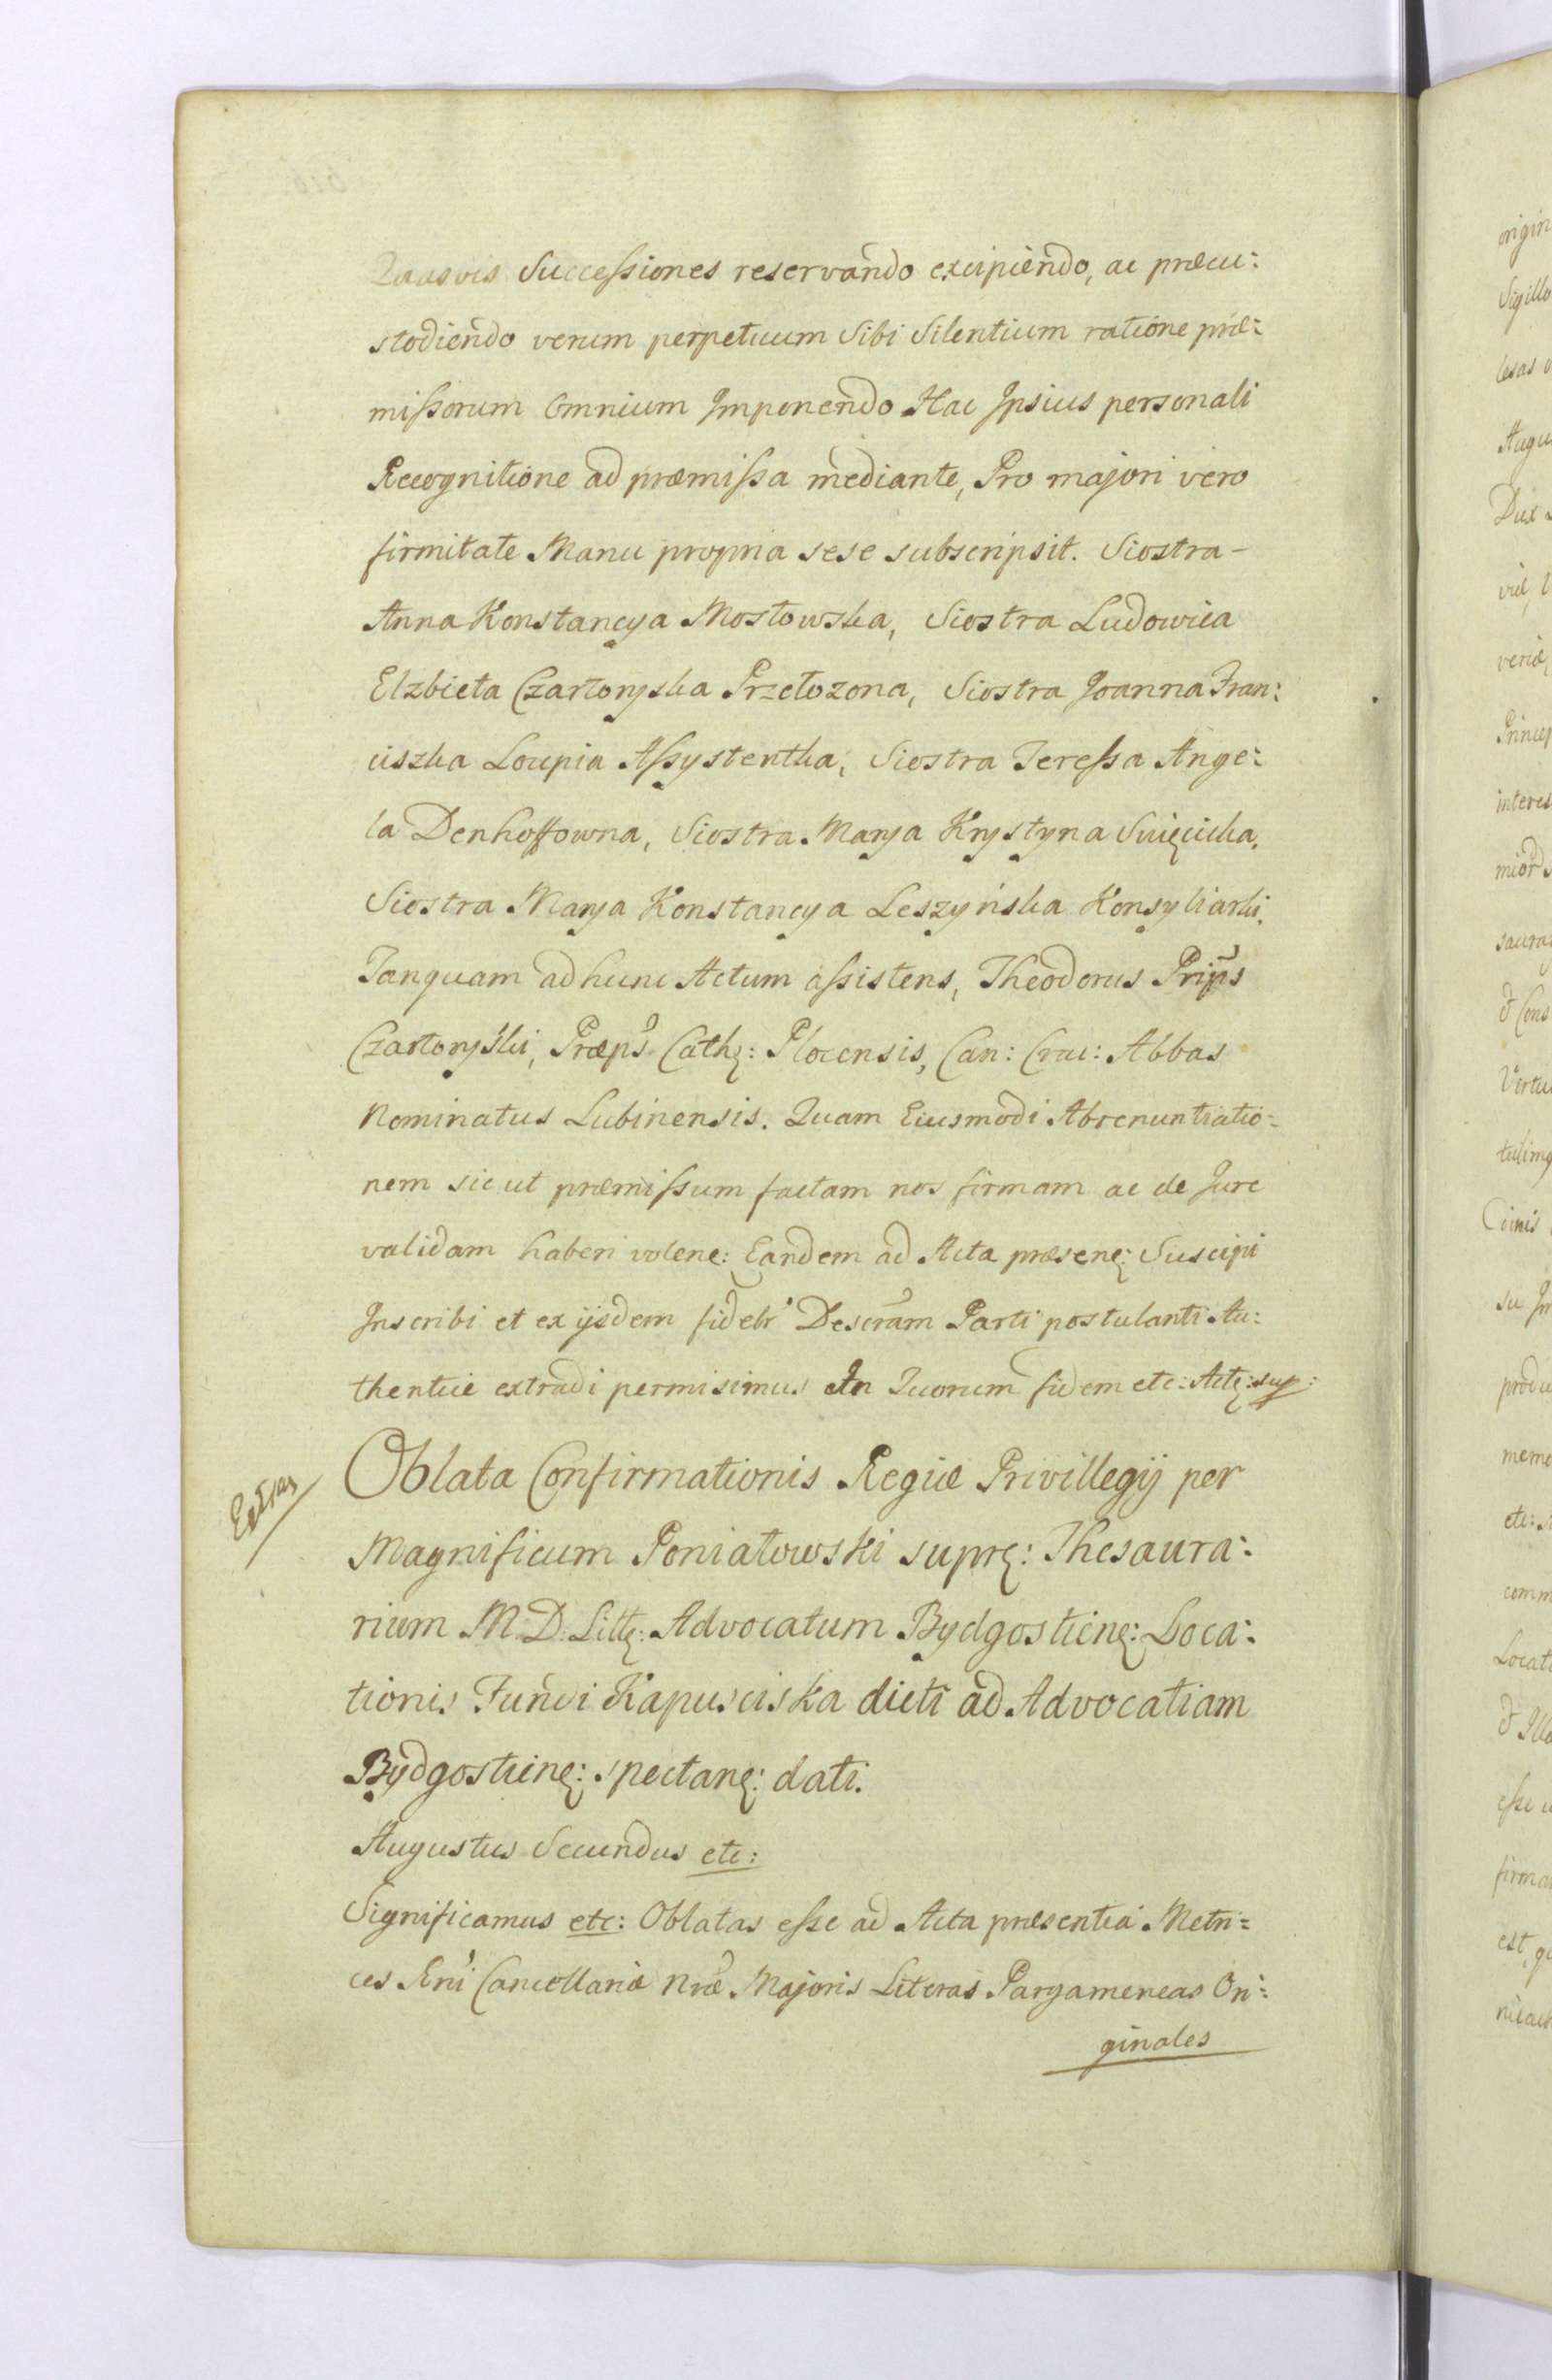 Quasvis Successiones reservando excipiendo, ac præcu:
stodiendo verum perpetuum Sibi Silentium ratione præ:
missorum Omnium Imponendo Hac Ipsius personali
Recognitione ad præmissa mediante, Pro majori vero
firmitate Manu propria sese subscripsit. Siostra -
Anna Konstancya Mostowska, Siostra Ludowica
Elzbieta Czartoryska Przełozona, Siostra Joanna Fran:
ciszka Loupia Assystentka, Siostra Teressa Ange:
la Denhoffowna, Siostra Marya Krystyna Swięcicka,
Siostra Marya Konstancya Leszyńska Konsyliarki.
Tanquam ad hunc Actum assistens, Theodorus Prips
Czartoryski, Præps Cathę: Plocensis, Can: Crac: Abbas
Nominatus Lubinensis. Quam Eiusmodi Abrenuntiatio-
nem sic ut præmissum factam nos firmam ac de Jure
validam haberi volenę: Eandem ad Acta præsenę: Suscipi
Inscribi et ex ijsdem fidelr Descram Parti postulanti Au:
thentice extradi permisimus In Quorum fidem etc: Actę: sup:
Extras
Oblata Confirmationis Regiæ Privillegij per
Magnificum Poniatowski suprę: Thesaura:
rium M. D. Littę: Advocatum Bydgostienę: Loca:
tionis Fundi Kapusciska dicti ad Advocatiam
Bydgostienę: spectanę: dati.
Augustus Secundus etc:
Significamus etc: Oblatas esse ad Acta præsentia Metri=
ces Rni Cancellariæ Nræ Majoris Literas Pargameneas Ori:
ginales
origin
Sigillo
Augu
Princep
interes